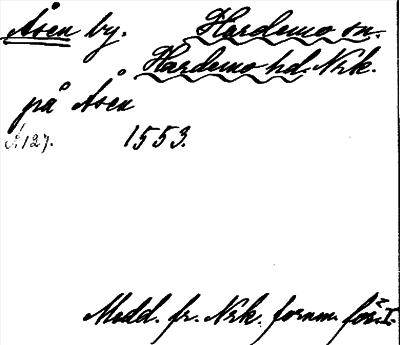 Åsen by. Hardemo sn.
Hardemo hd. Nrk.
på Åsen
Å 127. 1553.
Medd. fr. Nrk. fornm. för. I.